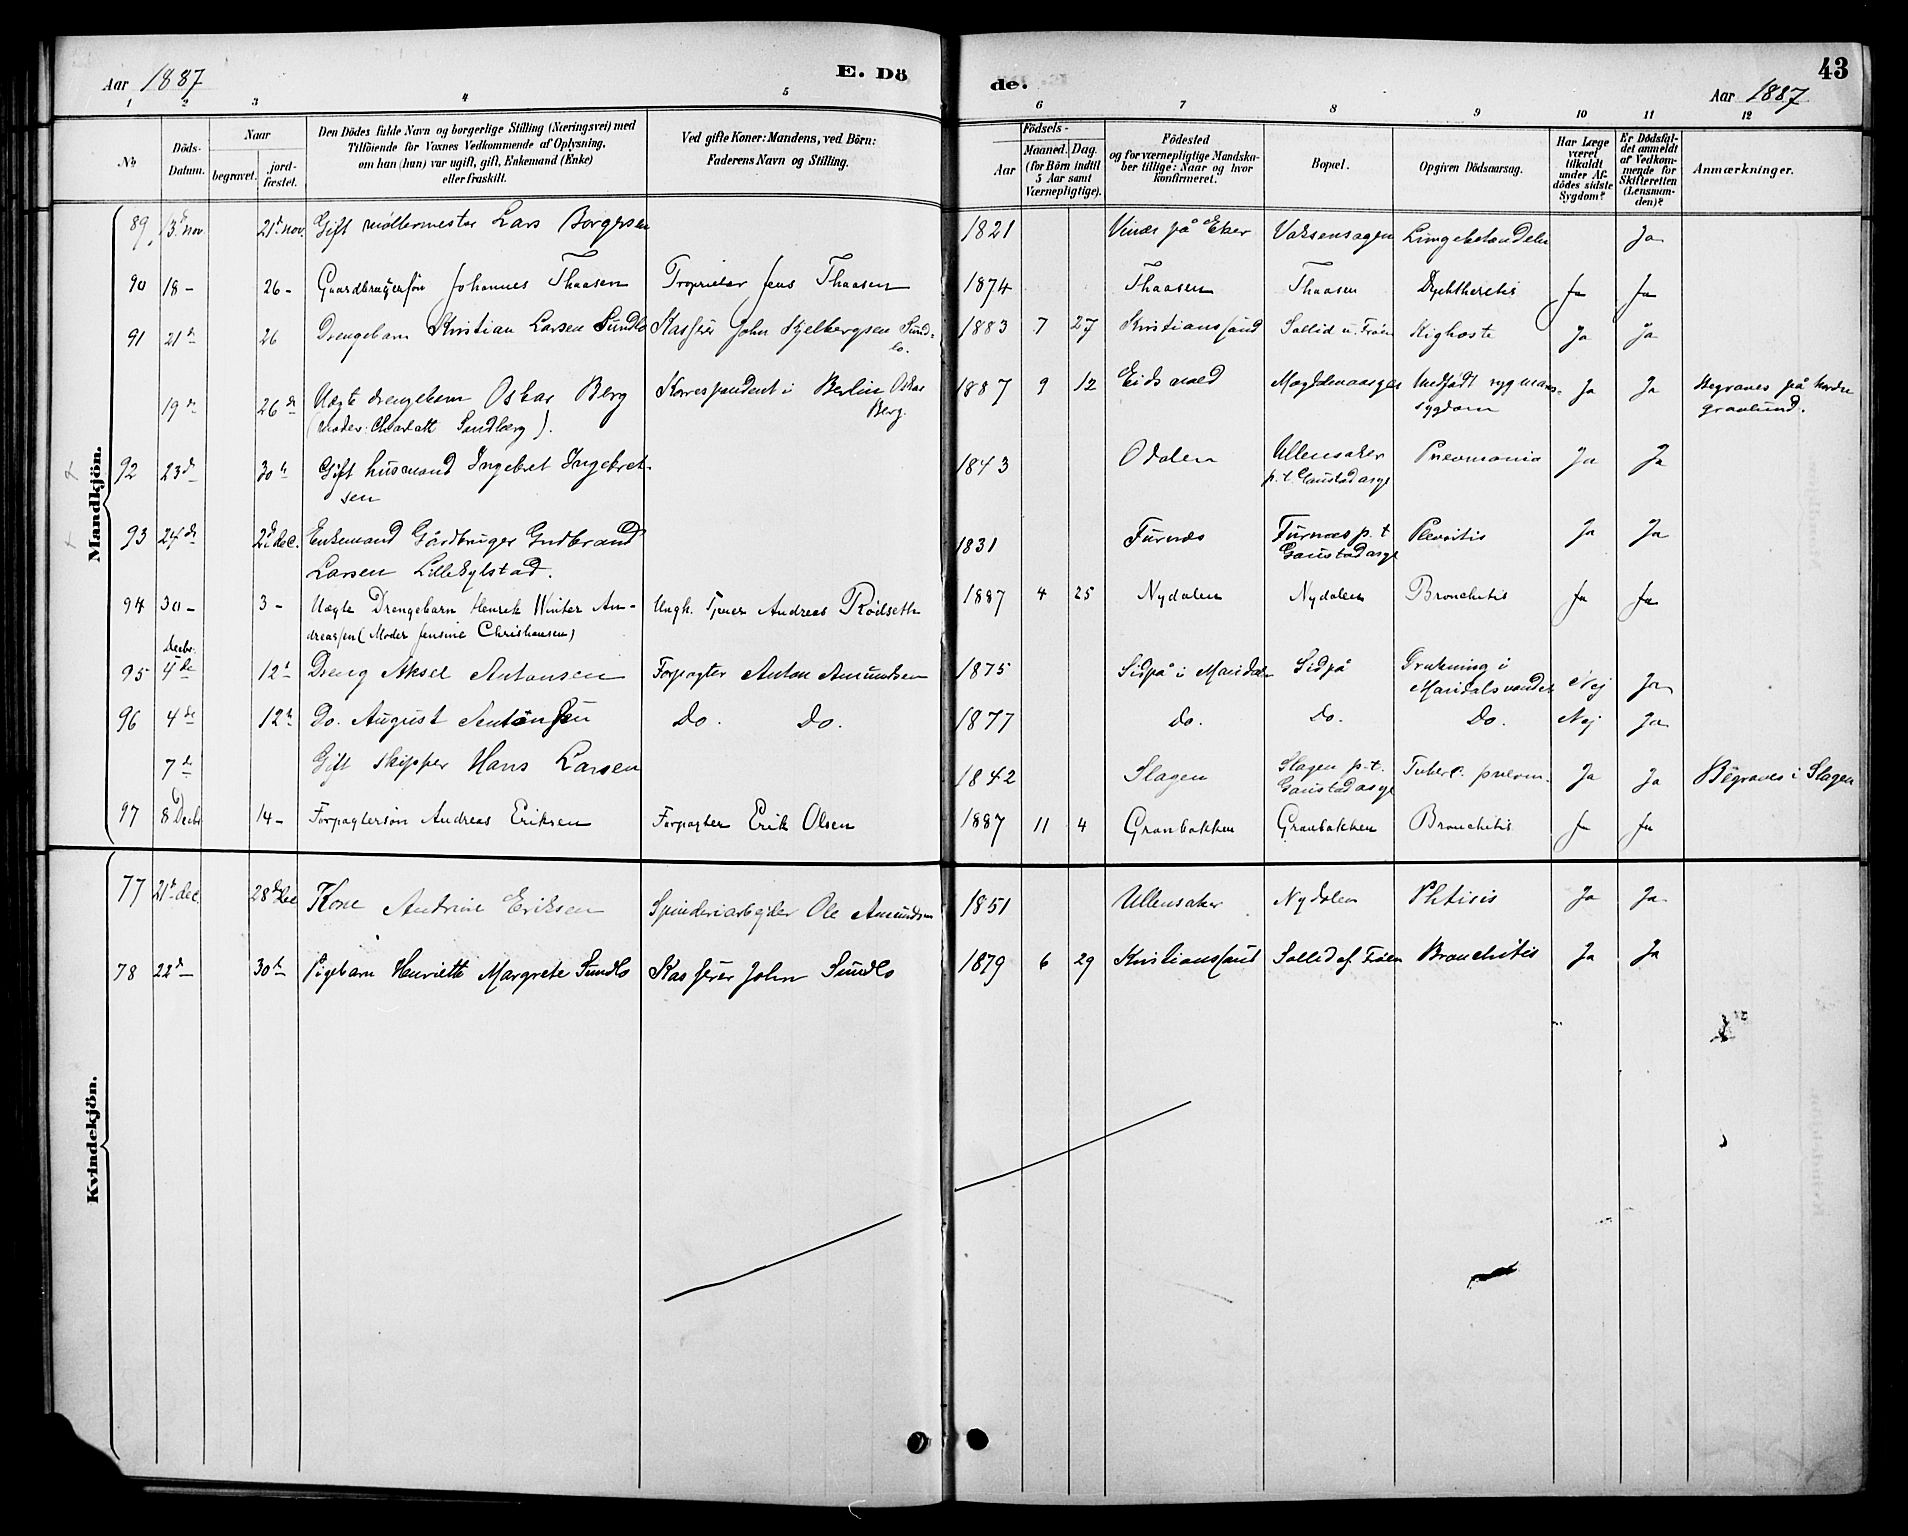 Aar 1887
E. Dö
de.
43
Aar 1887
1 2 3 4 5 6 7 8 9 10 11 12
No
Döds-
Datum.
Naar
begravet.
jord-
fæstet.
Den Dödes fulde Navn og borgerlige Stilling (Næringsvei) med
Tilföiende for Voxnes Vedkommende af Oplysning,
om han (hun) var ugift, gift, Enkemand (Enke)
eller fraskilt.
Ved gifte Koner: Mandens, ved Börn:
Faderens Navn og Stilling.
Födsels-
Aar
Maaned. Dag.
(for Börn indtil
5 Aar samt
Værnepligtige).
Födested
og for værnepligtige Mandska-
ber tillige: Naar og hvor
konfirmeret.
Bopæl.
Opgiven Dödsaarsag.
Har Læge
været
tilkaldt
under Af-
dödes sidste
Sygdom?
Er Dödsfal-
det anmeldt
af Vedkom-
mende for
Skifteretten
(Lensman-
den)?
Anmærkninger.
Mandkjön.
89 13de nov 21de nov. Gift møllermester Lars Borgersen 1821 på Eker Voksenaagen Ja
90 18 - 26 - Gaardbrugersön Johannes Thaasen Proprietær Jens Thaasen 1874 Thaasen Thaasen Dyphtheritis Ja Ja
91 21de 26 Drengebarn Kristian Larsen Sundlo Kasserer John Kjelbergsen Sund-
lo. 1883 7 27 Kristianssund Sollid u. Fröen Kighoste Ja Ja
19de 26de Uægte drengebarn Oskar Berg Korrespondent i Berlin Oskar
Berg. 1887 9 12 Eidsvold Medfødt
sygdom Ja Ja Begraves på nordre
gravlund.
(Moder: Charlott Sandberg).
92 23de 30te Gift husmand Ingebret Ingebret-
sen 1843 Odalen Ullensaker
p.t. Gaustad asyl Pneumonia Ja Ja
93 24de 2de dec. Enkemand Gårdbruger Gudbrand
Larsen Lillekylstad. 1831 Furnæs Furnæs p.t
Gaustad asyl Plevritis Ja Ja
94 30 - 3 - Uægte Drengebarn Henrik Winter An-
dreassen (Moder Jensine Christiansen) Ungk. Andreas Rödseth 1887 4 25 Nydalen Nydalen Bronchitis Ja Ja
Decbr.
95 4de 12te Dreng Aksel Antonsen Forpagter Anton Amundsen 1875 Sidpå i Maridalen Sidpå Drukning i
Maridalsvandet Nej Ja
96 4de 12te Do. August Antonsen Do. Do. 1877 Do. Do. Do. Nej Ja
7de Gift skipper Hans Larsen 1842 Slagen Slagen p.t.
Gaustad asyl Tuberc. pneum. Ja Ja Begraves i Slagen
97 8 Decbr 14 - Forpagtersön Andreas Eriksen Forpagter Erik Olsen 1887 11 4 Granbakken Granbakken Bronchitis Ja Ja
Kvindekjön.
77 21de dec. 28de Dec Kone Andrine Eriksen Spinderiarbejder Ole Amundsen 1851 Ullensaker Nydalen Phtisis Ja Ja
78 22de 30te Pigebarn Henriette Margrete Sundlo Kasserer John Sundlo 1879 6 29 Kristianssund Sollid af Fröen Bronchitis Ja Ja